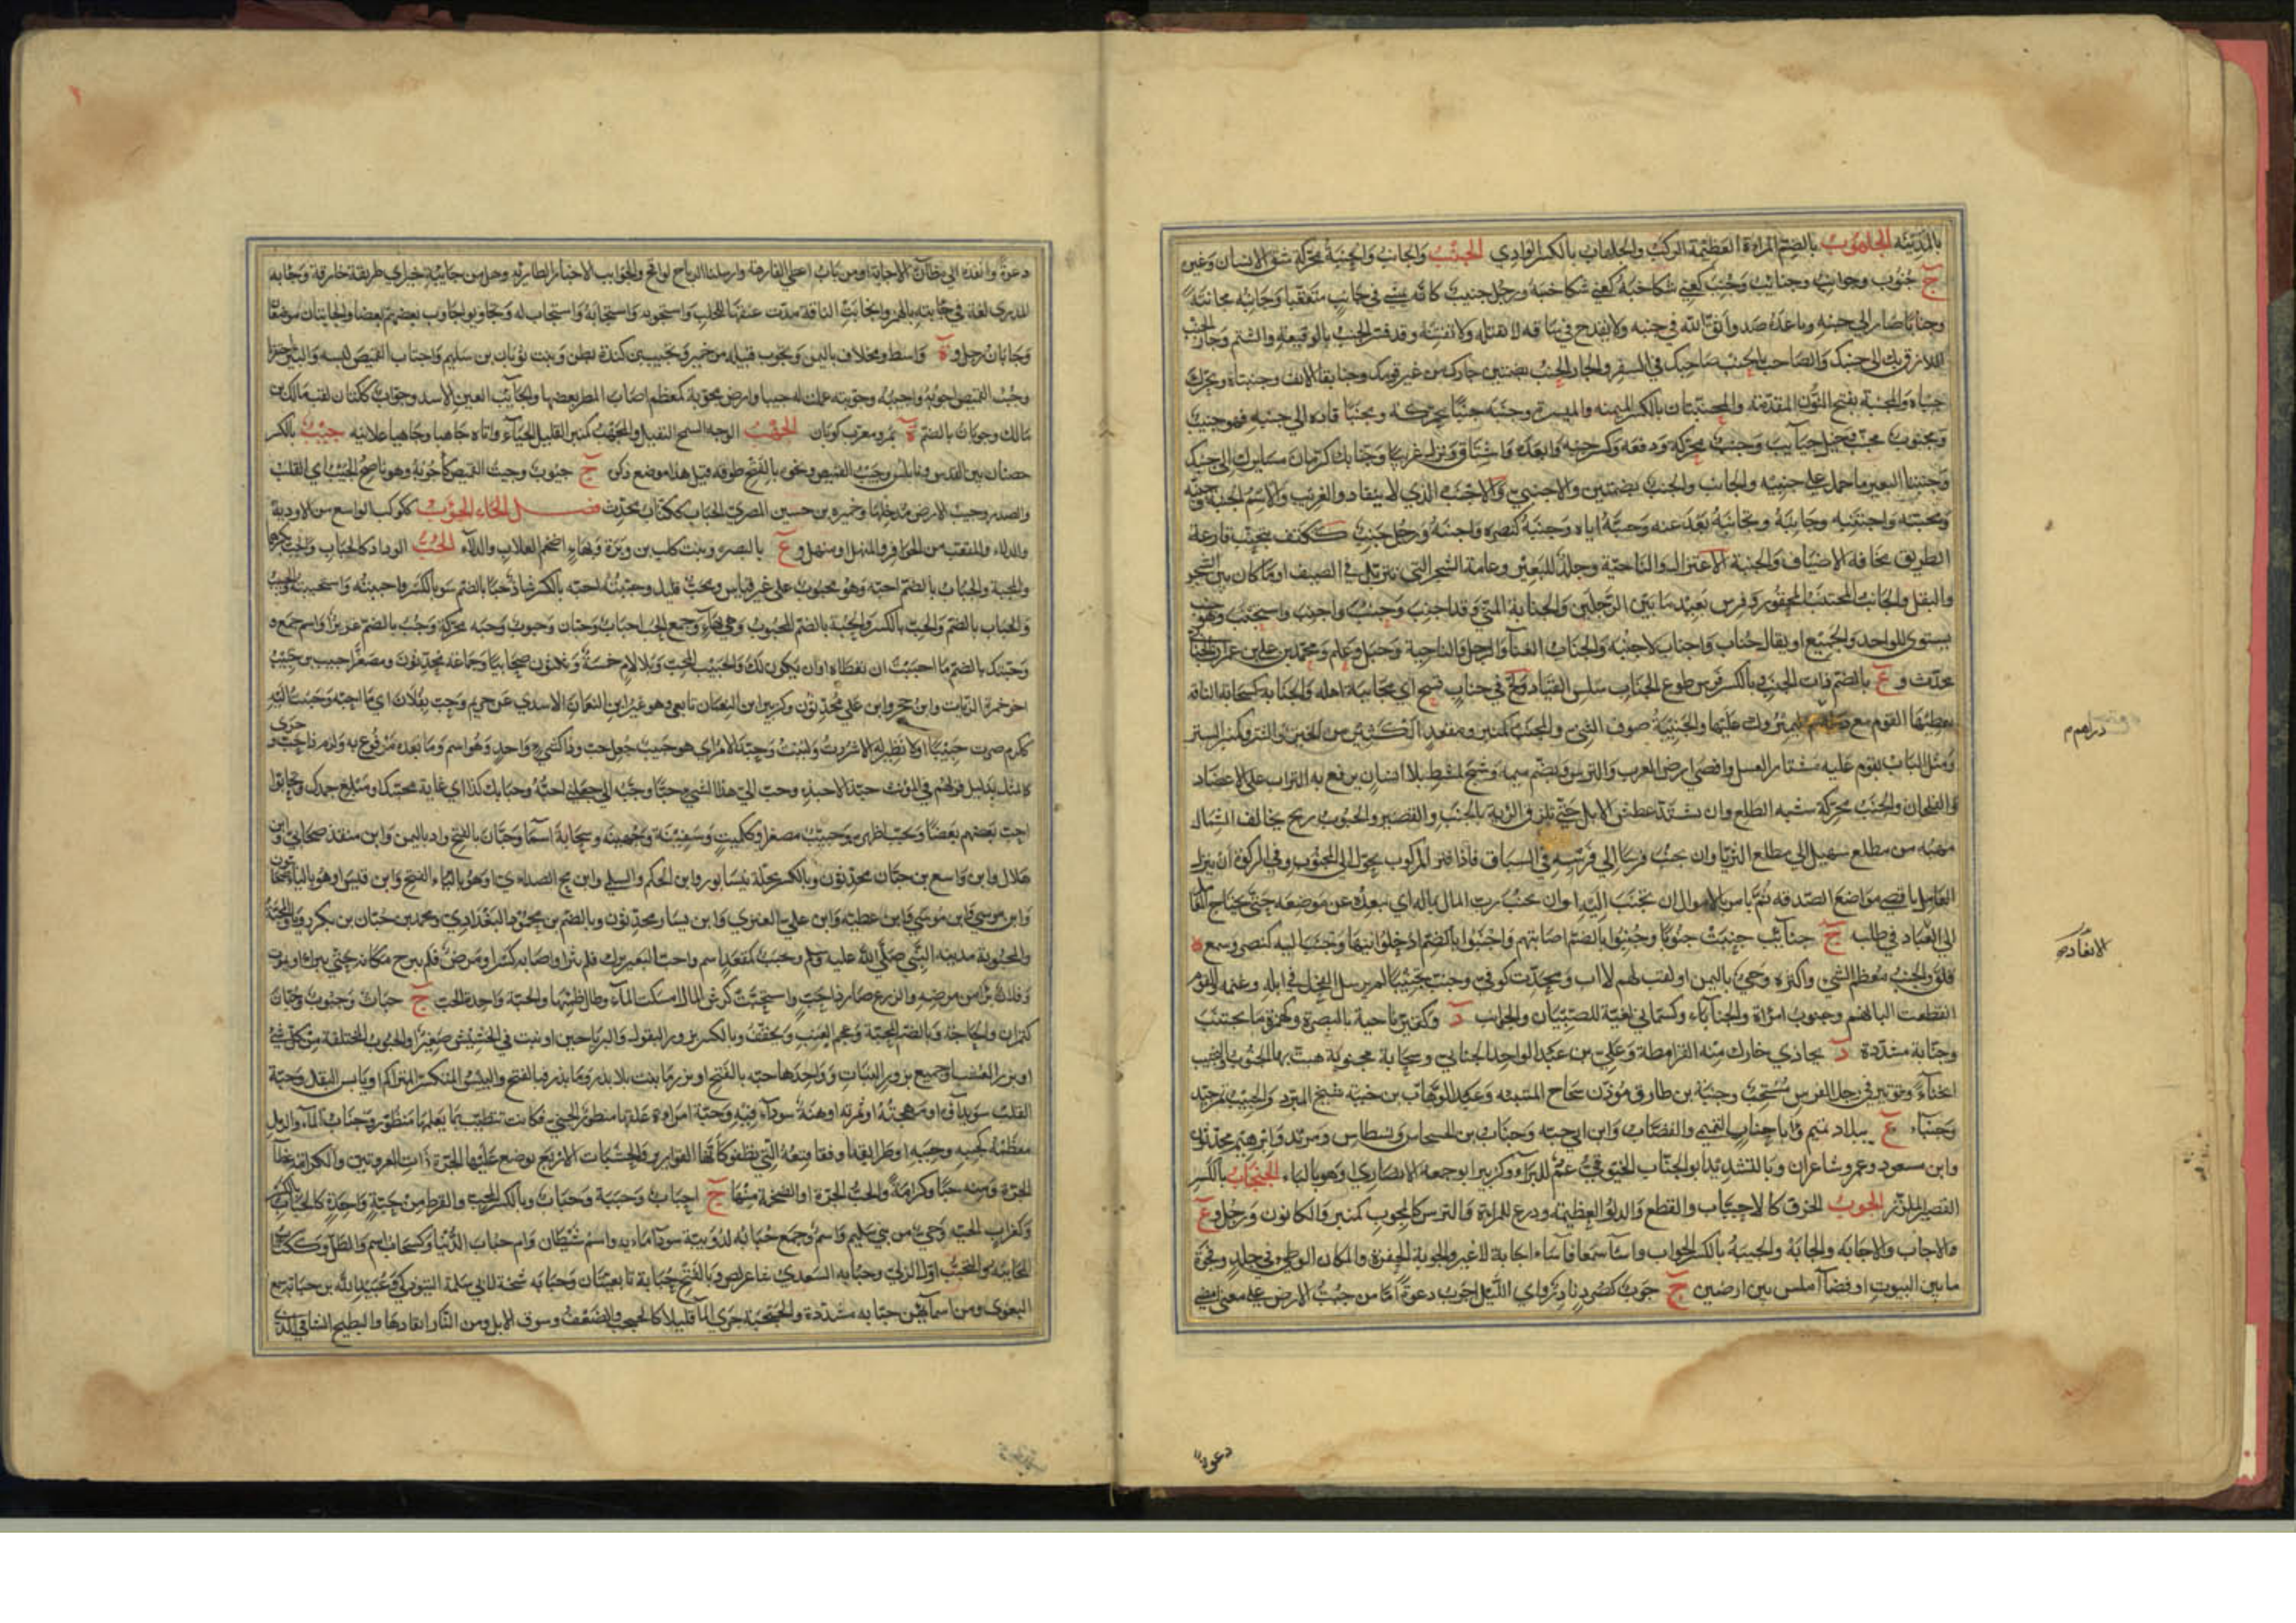 بالمدينة الجلهوب بالضم المراة العظيمة الركب والجلهاب بالكسر الوادي الجنب والجانب والجنبة محركة شق الانسان وغيره
ج جنوب وجوانب وجنائب وجنب كعني شكا جنبه ورجل جنيب كانه يمشي في جانب متعقبا وجانبه مجانبة
وجنابا صار الى جنبه وباعده ضد واتق الله في جنبه ولا تقدح في ساقه لا تقتله ولا تفتنه وقد فسر الجنب بالوقيعة والشتم وجار الجنب
اللازق بك الى جنبك والصاحب بالجنب صاحبك في السفر والجار الجنب بضمتين جارك من غير قومك وجنابتا الانف وجنبتاه ويحرك
جنباه والمجنبة بفتح النون المقدمة والمجنبتان بالكسر الميمنة والميسرة وجنبه جنبا محركة ومجنبا قاده الى جنبه فهو جنيب
ومجنوب ومجنب وخيل جنائب وجنب محركة ودفعه وكسر جنبه وابعده واشتاق ونزل غريبا وجنابك كرمان مسايرك الى جنبك
وجنيبتا البعير ما حمل على جنبيه والجانب والجنب بضمتين والاجنبي والاجنب الذي لا ينقاد والغريب والاسم الجنبة
وتجنبه واجتنبه وجانبه وتجانبه بعد عنه وجنبه اياه وجنبه كنصره واجنبه ورجل جنب ككتف يتجنب قارعة
الطريق مخافة الاضياف والجنبة الاعتزال والناحية وجلد للبعير وعامة الشجر التي تتربل في الصيف او ما كان بين الشجر
والبقل والجانب المجتنب المحقور وفرس بعيد ما بين الرجلين والجنابة المني وقد اجنب وجنب وجنب واجنب واستجنب وهو جنب
يستوي للواحد والجميع او يقال جنبان واجناب لا جنبة والجناب الفناء والرحل والناحية وجبل وعلم ومحمد بن علي بن عمران الجنابي
محدث وع بالضم ذات الجنب وبالكسر فرس طوع الجناب سلس القياد ولج في جناب قبيح اي مجانبة اهله والجنابة كسحابة الناقة
يعطيها القوم مع دراهم ليميروك عليها والجنيبة صوف الثني والمجنب كمنبر ومقعد الكثير من الخير والشر وكمنبر الستر
ومثل الباب يقوم عليه مشتار العسل واقصى ارض العرب والترس وتضم ميمه وشبح كمشط بلا اسنان يرفع به التراب على الاعضاد
والفلجان والجنب محركة شبه الظلع وان يشتد عطش الابل حتى تلزق الرئة بالجنب والقصير والجنوب ريح يخالف الشمال
مهبه من مطلع سهيل الى مطلع الثريا وان يجنب فرسا الى فرسه في السباق فاذا فتر المركوب يحول الى المجنوب وفي الزكوة ان ينزل
العامل باقصى مواضع الصدقة ثم يامر بالاموال ان تجنب اليه او ان يجنب رب المال بماله اي يبعده عن موضعه حتى يحتاج العامل
الى ابعاد في طلبه ج جنائب جنبت جنوبا وجنبوا بالضم اصابتهم واجنبوا بالضم ادخلوا فيها وجنب اليه كنصر وسمع
قلق والجنب معظم الشيء واكثره وحي باليمن او لقب لهم لا اب ومحدث كوفي وجنب تجنيبا لم يرسل الفحل في ابله وغنمه والقوم
انقطعت البانهم وجنوب امراة والجناباء وكسمانى لعبة للصبيان والجوانب د وكقبر ناحية بالبصرة وكهمزة ما يجتنب
وجنابة مشددة د يحاذي خارك منه القرامطة وعلي بن عبد الواحد الجنابي وسحابة مجنوبة هبت بها الجنوب والتجنيب
انحناء وتوتير في رجل الفرس مستحب وجنبة بن طارق مؤذن سجاح المتنبئة وعبد الوهاب بن جنبة شيخ المبرد والجنيب تمر جيد
وجنباء ع ببلاد تميم وابا جناب التميمي والقصاب وابن ابي حية وجناب بن الحسحاس ونسطاس ومرثد وابرهيم محدثون
وابن مسعود وعمرو شاعران وبالتشديد ابو الجناب الخيوقي نجم الكبراء وكزبير ابو جمعة الانصاري او هو بالباء الجنجاب بالكسر
القصير الملزز الجوب الخرق كالاجتياب والقطع والدلو العظيمة ودرع للمراة والترس كالمجوب كمنبر والكانون ورجل وع
والاجاب والاجابة والجابة والجيبة بالكسر الجواب واساء سمعا فاساء اجابة لا غير والجوبة الحفرة والمكان الوطئ في جلد وفجوة
ما بين البيوت او فضاء املس بين ارضين ج جوب كصرد نادر واي الليل اجوب دعوة اما من جبت الارض على معنى امضى
دراهم م
الابعاد
دعوة
دعوة وانفذ الى مظان الاجابة او من باب اعطى لفارهة وارسلنا الرياح لواقح والجوايب الاخبار الطارئة وهل من جائبة خبر اي طريقة خارقة وجابة
المدرى لغة في جابته بالهمز وانجابت الناقة مدت عنقها للحلب واستجوبه واستجابه واستجاب له وتجاوبوا جاوب بعضهم بعضا والجابتان موضعان
وجابان رجل وة بواسط ومخلاف باليمن وتجوب قبيلة من حمير وتجيب بن كندة بطن وبنت ثوبان بن سليم واجتاب القميص لبسه والبئر احتفرها
وجبت القميص اجوبه واجيبه وجوبته عملت له جيبا وارض مجوبة كمعظم اصاب المطر بعضها والجائب العين الاسد وجواب ككتان لقب مالك بن
مالك وجوبان بالضم ة بمرو معرب كوبان الجهب الوجه السمج الثقيل والمجهب كمنبر القليل الحياء واتاه جاهبا وجاهيا علانية جيب بالكسر
حصنان بين القدس ونابلس وجيب القميص ونحوه بالفتح طوقه قيل هذا موضع ذكره ج جيوب وجبت القميص كاجوبه وهو ناصح الجيب اي القلب
والصدر وجيب الارض مدخلها وحميرة بن حسين المصري الجياب ككتان محدث فصل الحاء الحوأب ككوكب الواسع من الاودية
والدلاء والمقعب من الحوافر والمنهل او منهل وع بالبصرة وبنت كلب بن وبرة وبهاء اضخم العلاب والدلاء الحب الوداد كالحباب والحب بكسرهما
والمحبة والحباب بالضم احبه وهو محبوب على غير قياس ومحب قليل وحببته احبه بالكسر شاذ حبا بالضم وبالكسر واحببته واستحببته والحبيب
والحباب بالضم والحب بالكسر والحبة بالضم المحبوب وهي بهاء وجمع الحب احباب وحبان وحبوب وحببة محركة وحب بالضم عزيز او اسم جمع
وحبتك بالضم ما احببت ان تعطاه او ان يكون لك والحبيب المحب وبلا لام خمسة وثلاثون صحابيا وجماعة محدثون ومصغرا حبيب بن حبيب
اخو حمزة الزيات وابن حجر وابن علي محدثون وكزبير ابن النعمان تابعي وهو غير ابن النعمان الاسدي عن خريم وحب بفلان اي ما احبه وحببت اليه
ككرم صرت حبيبا او لا نظير له الا شررت ولببت وحبذا الامر اي هو حبيب جعل حب وذا كشيء واحد وهو اسم وما بعده مرفوع به ولزم ذا حب وجرى
كالمثل بدليل قولهم في المؤنث حبذا لا حبذه وحب الي هذا الشيء حبا وحببه الي جعلني احبه وحبابك كذا اي غاية محبتك او مبلغ جهدك وتحابوا
احب بعضهم بعضا وتحبب اظهره وحبيب مصغرا وككميت وسفينة وجهينة وسحابة اسماء وحبان بالفتح واد باليمن وابن منقذ صحابي وابن
هلال وابن واسع بن حبان محدثون وبالكسر محلة بنيسابور وابن الحكم والسلمي وابن بح الصدائي او هو بالباء الفتح وابن قيس او هو بالياء صحابيون
وابن موسى وابن عطية وابن علي العنزي وابن يسار محدثون وبالضم بن محمود البغدادي ومحمد بن حبان بن بكر رويا والمحبة
والمحبوبة مدينة النبي صلى الله عليه وسلم ومحبب كمقعد اسم واحب البعير برك فلم يثر او اصابه كسر او مرض فلم يبرح مكانه حتى يبرا او يموت
وفلان برئ من مرضه والزرع صار ذا حب واستحبت كرش المال امسكت الماء وطال ظمئها والحبة واحدة الحب ج حبات وحبوب وحبان
كتمران والحاجة وبالضم المحبة وعجم العنب ويخفف وبالكسر بزور البقول والرياحين او نبت في الحشيش صغير او الحبوب المختلفة من كل شيء
او بزر العشب او جميع بزور النبات وواحدها حبة بالفتح او بزر ما ينبت بلا بذر وما بذر فبالفتح واليبيس المتكسر المتراكم او يابس البقل وحبة
القلب سويداؤه او مهجته او ثمرته او هنة سوداء فيه وحبة امراة علقها منظور الجني فكانت تتطبب بما يعلمها منظور وحباب الماء والرمل
معظمه كحببه وحببه او طرائقه او فقاقيعه التي تطفو كانها القوارير والحب الجرة او الخشبات الاربع توضع عليها الجرة ذات العروتين والكرامة غطاء
الجرة ومنه حبا وكرامة والحب الجرة او الضخمة منها ج احباب وحببة وحباب وبالكسر المحب والقرط من حبة واحدة كالحباب بالكسر
وكغراب الحية وحي من بني سليم واسم وجمع حبابة لدويبة سوداء مائية واسم شيطان وام حباب الدنيا وكسحاب اسم والطل وككتاب
المحابة والتحبب اول الري وحبابة السعدي شاعر لص وبالفتح حبابة تابعيتان وحبابة شيخة لابي سلمة التبوذكي وعبيد الله بن حبابة سمع
البغوي ومن اسمائهن حبابة مشددة والحبحبة جري الماء قليلا كالحبحب والضعف وسوق الابل ومن النار اتقادها والبطيخ الشامي الذي